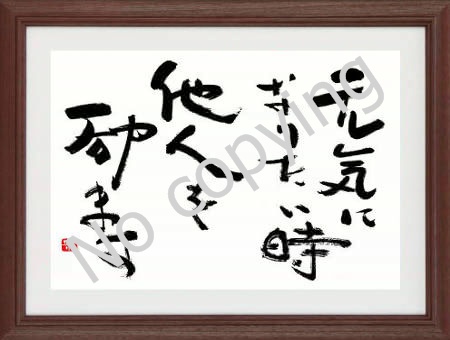 元気に
なりたい時
他人を
励ます
No copying